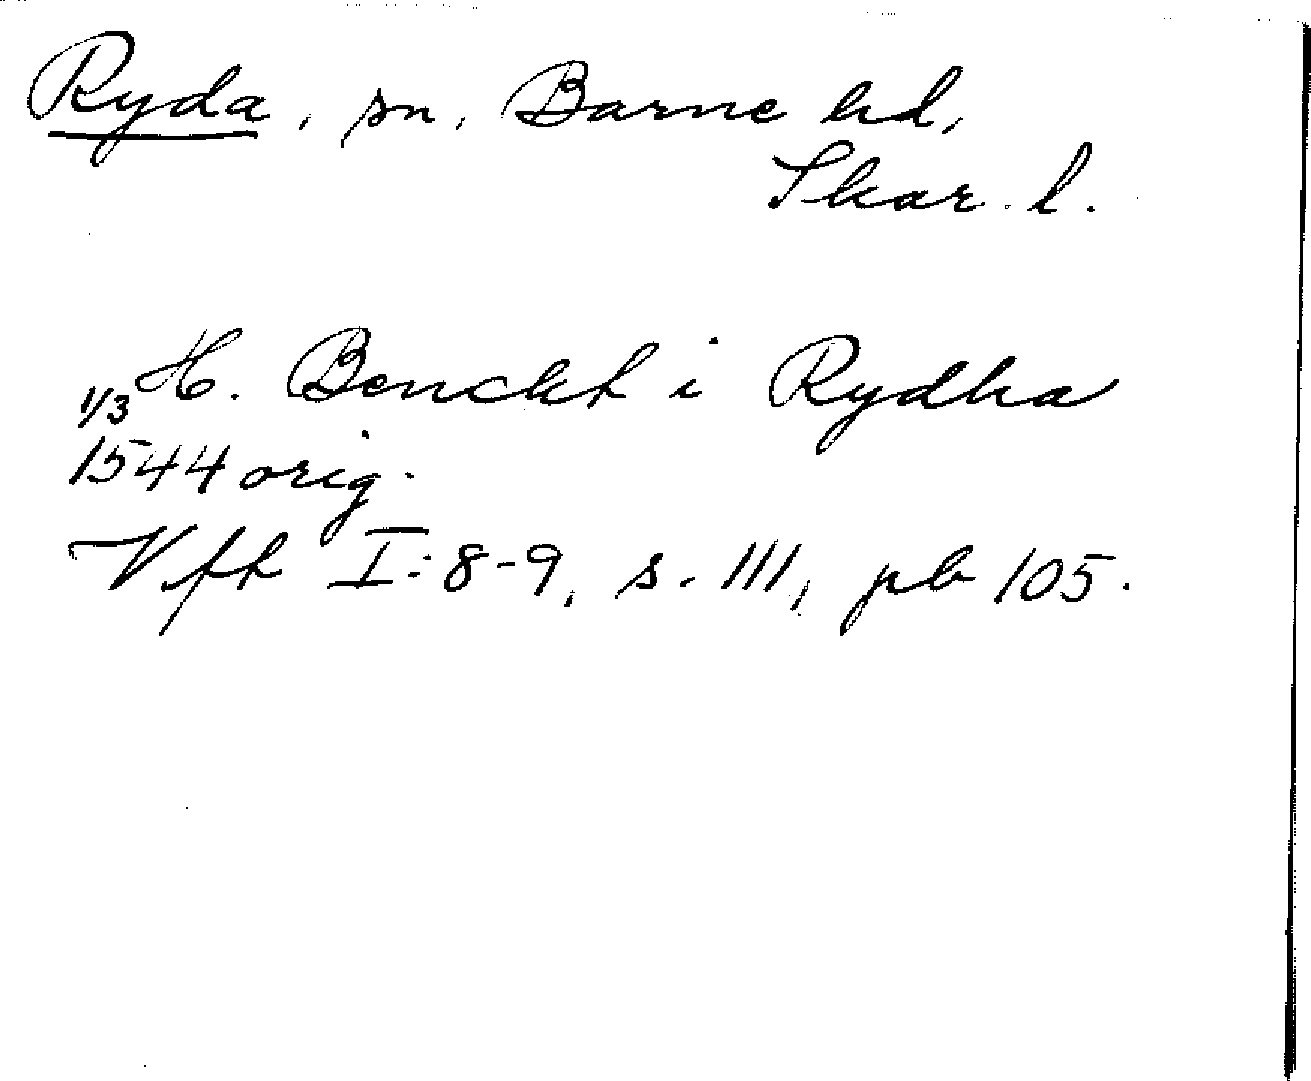 Ryda, sn, Barne hd,
Skar. l.
H. Benckt i Rydha
1/3
1544 orig.
Vfh I:8-9, s. 111, pb 105.